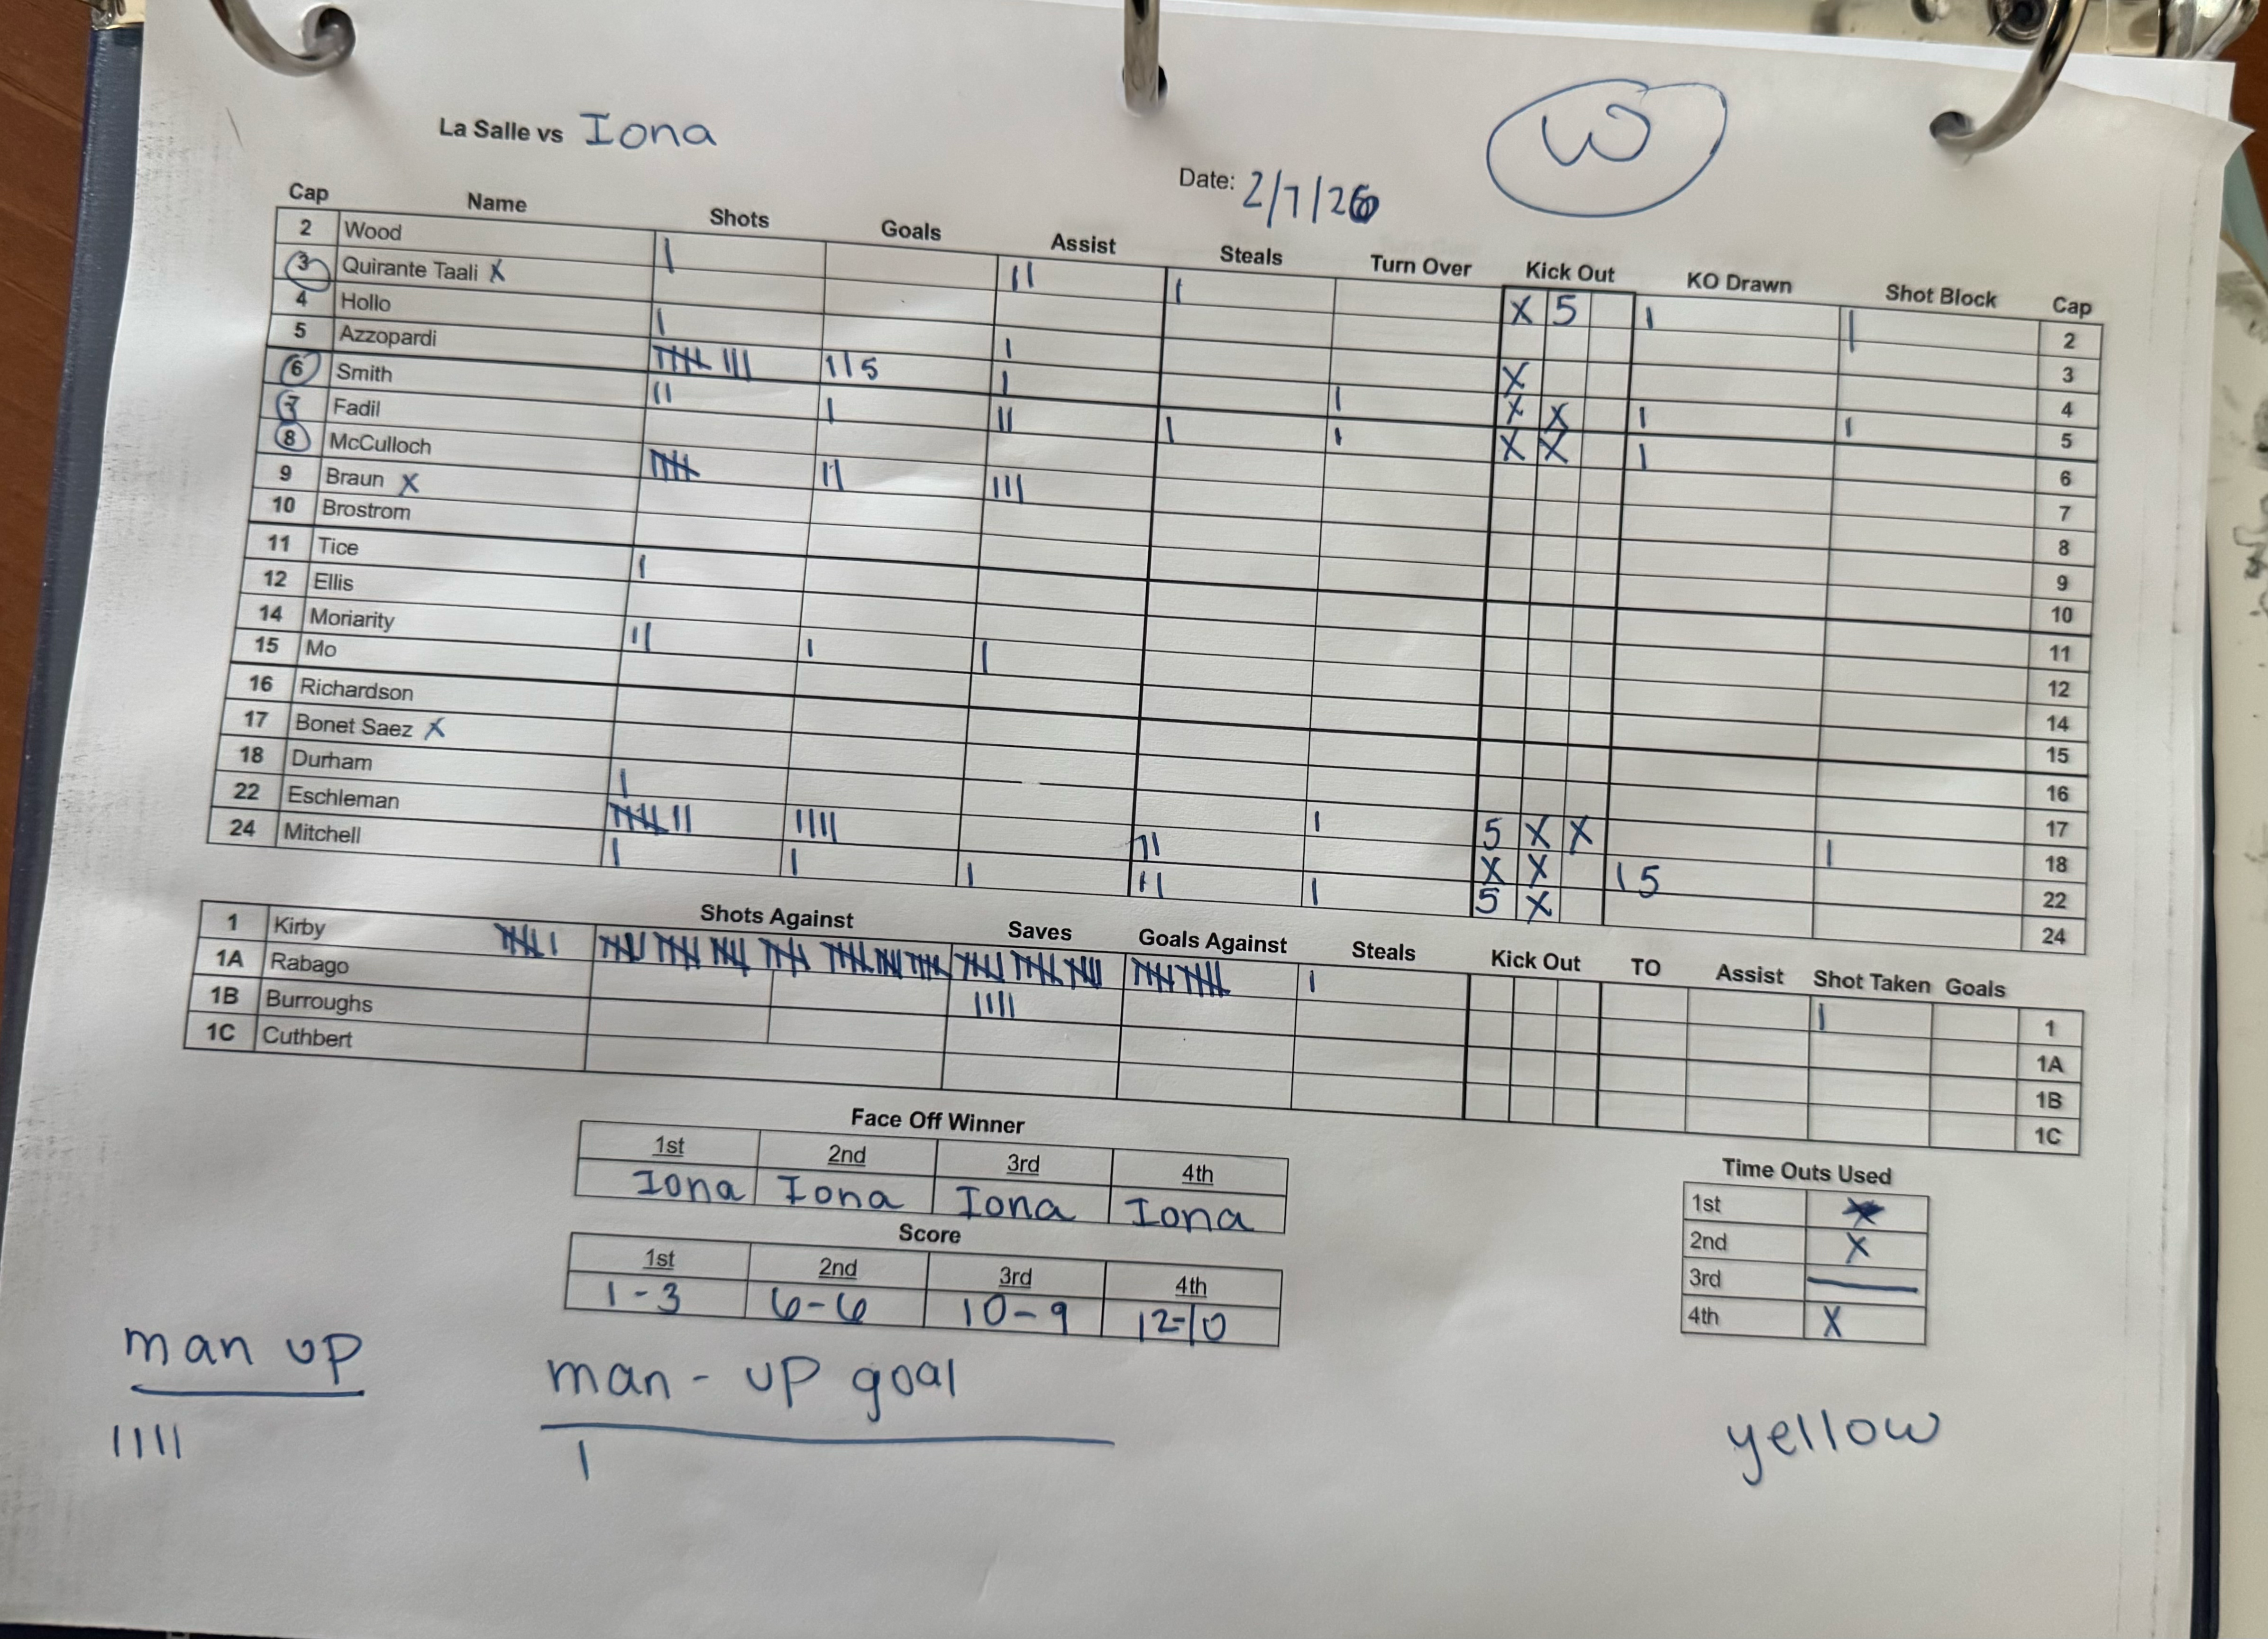 La Salle vs Iona
W
Date: 2/7/26
Cap Name Shots Goals Assist Steals Turn Over Kick Out KO Drawn Shot Block Cap
2 Wood | || | X 5 | | 2
3 Quirante Taali X 3
4 Hollo | | X 4
5 Azzopardi |||| ||| ||5 | | X X | | 5
6 Smith || | || | | X X | 6
7 Fadil 7
8 McCulloch |||| || ||| 8
9 Braun X 9
10 Brostrom 10
11 Tice | 11
12 Ellis 12
14 Moriarity || | | 14
15 Mo 15
16 Richardson 16
17 Bonet Saez X 17
18 Durham | | 5 X X | 18
22 Eschleman |||| || |||| || X X |5 22
24 Mitchell | | | || | 5 X 24
Shots Against Saves Goals Against Steals Kick Out TO Assist Shot Taken Goals
1 Kirby |||| | |||| |||| |||| |||| |||| |||| |||| |||| |||| |||| |||| |||| |||| | | 1
1A Rabago 1A
1B Burroughs 1B
1C Cuthbert 1C
Face Off Winner
1st 2nd 3rd 4th
Iona Iona Iona Iona
Score
1st 2nd 3rd 4th
1-3 6-6 10-9 12-10
Time Outs Used
1st X
2nd X
3rd —
4th X
man up
||||
man-up goal
|
yellow